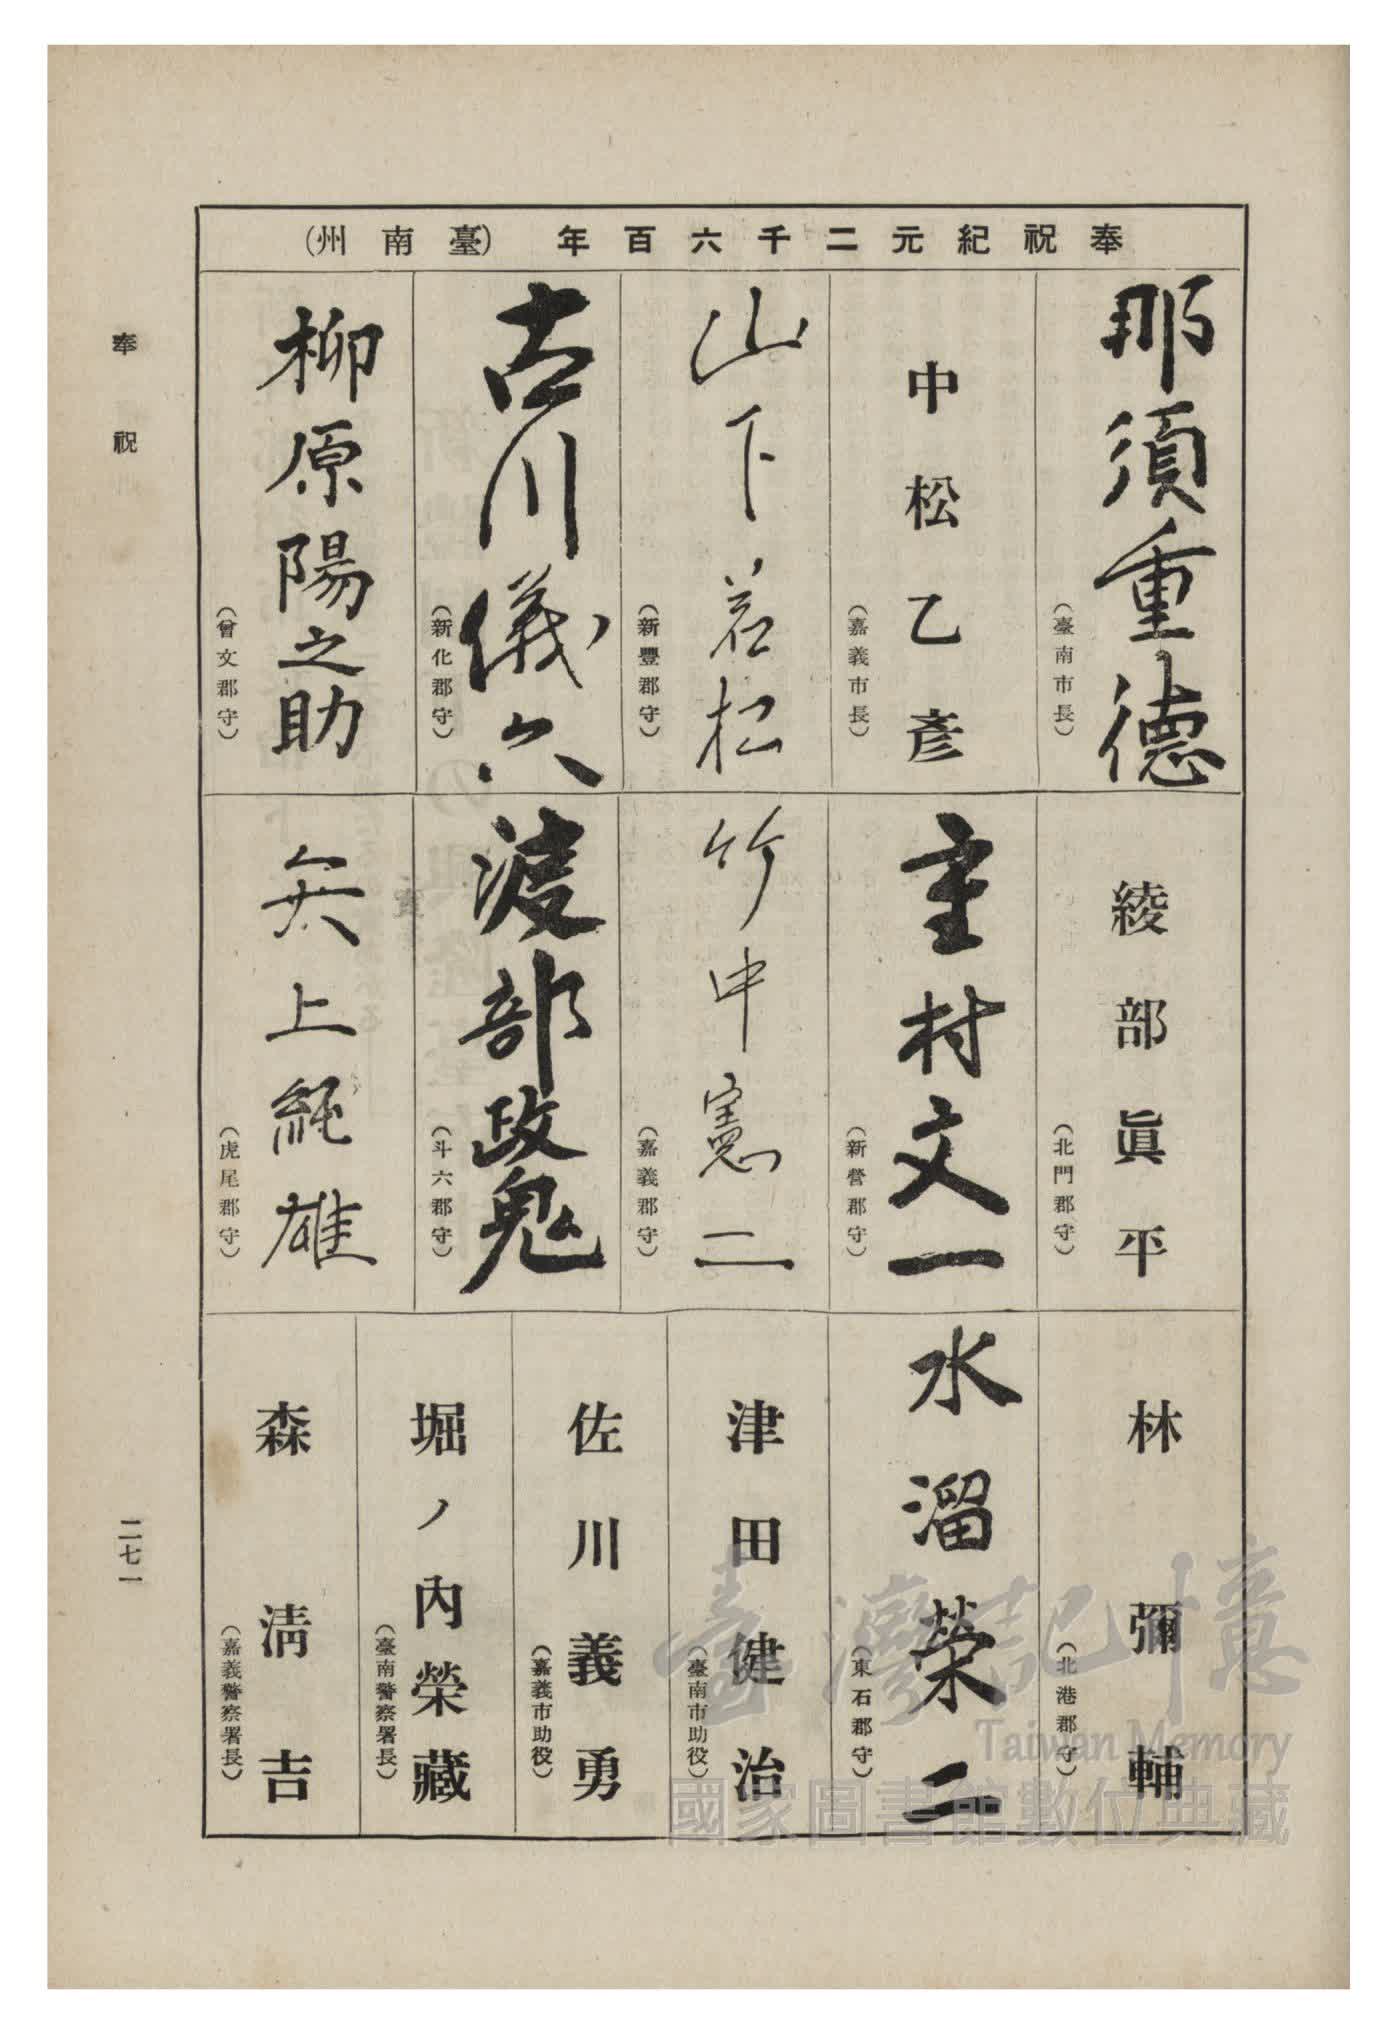 奉祝紀元二千六百年（臺南州）
那須重德
（臺南市長）
中松乙彥
（嘉義市長）
山下若松
（新豐郡守）
古川儀六
（新化郡守）
柳原陽之助
（曾文郡守）
綾部眞平
（北門郡守）
重村文一
（新營郡守）
竹中憲二
（嘉義郡守）
渡部政鬼
（斗六郡守）
上純雄
（虎尾郡守）
林彌輔
（北港郡守）
水溜榮二
（東石郡守）
津田健治
（臺南市助役）
佐川義勇
（嘉義市助役）
堀ノ內榮藏
（臺南警察署長）
森淸吉
（嘉義警察署長）
奉祝
二七一
臺灣記憶
Taiwan Memory
國家圖書館數位典藏